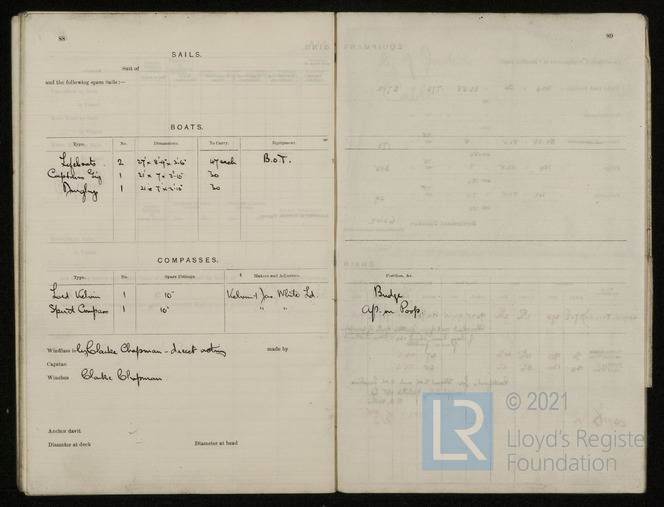 88
SAILS.
Suit of
and the following spare Sails:—
BOATS.
Type. No. Dimensions. To Carry. Equipment.
Lifeboats 2 27' x 8'-9" x 3'-6" 47 each B.O.T.
Captains Gig 1 21' x 7' x 2'-10" 20
Dinghy 1 21' x 7' x 2'-10" 20
COMPASSES.
Type. No. Spare Fittings. Makers and Adjusters.
Lord Kelvin 1 10" Kelvin & Jas. White Ld.
Spirit Compass 1 10" " "
Windlass is by Clarke Chapman - direct acting made by
Capstan
Winches Clarke Chapman
Anchor davit
Diameter at deck Diameter at head
89
Position, &c.
Bridge
Aft. on Poop.
LR
© 2021
Lloyd's Register
Foundation